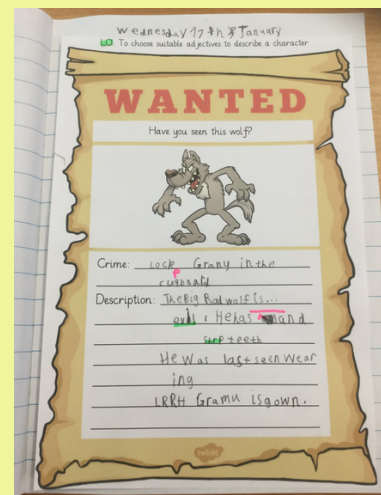 Wednesday 17th January
LO To choose suitable adjectives to describe a character
WANTED
Have you seen this wolf?
Crime: Lock Grany in the
cupboard
Description: The Big Bad wolf is...
evil. He has and
shrp teeth
He was last seen wear
ing
LRRH Gramu is gown.
twinkl